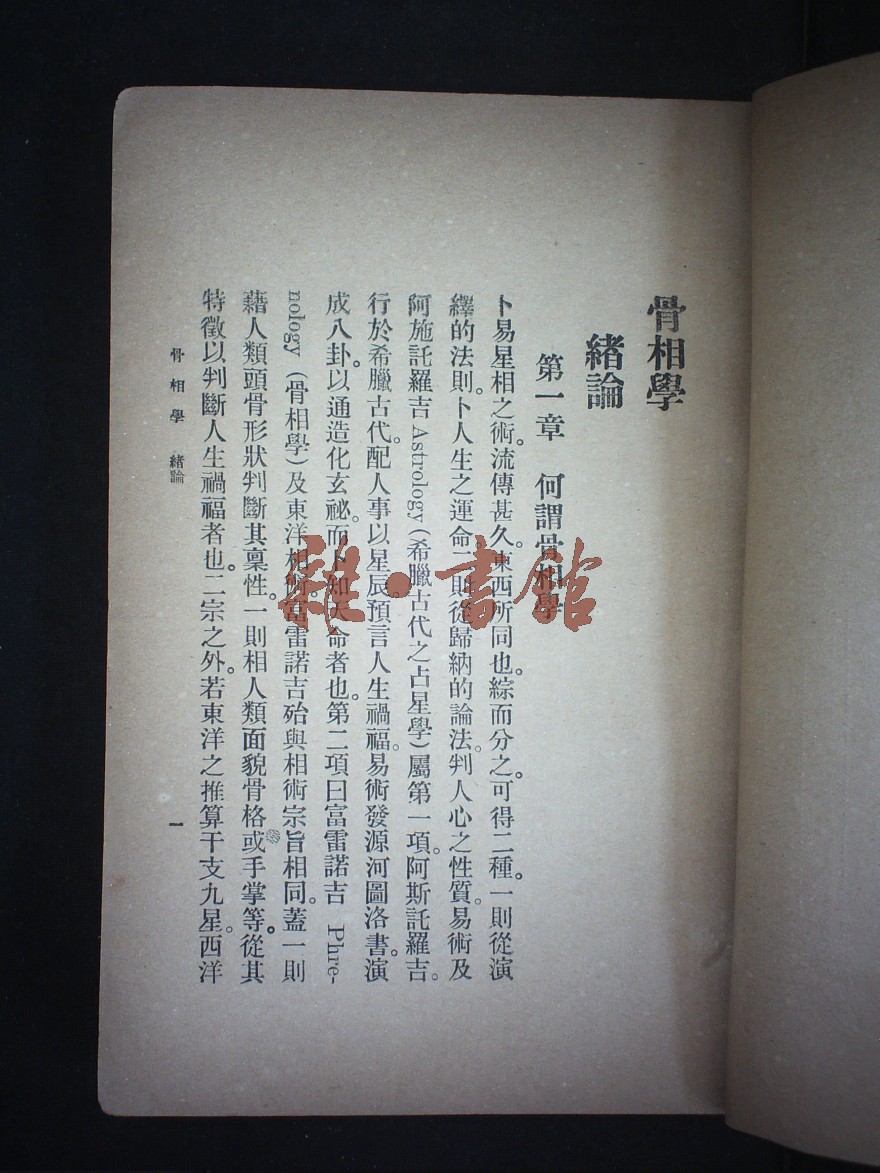 骨相學
緒論
第一章　何謂骨相學
卜易星相之術。流傳甚久。東西所同也。綜而分之。可得二種。一則從演
繹的法則。卜人生之運命。一則從歸納的論法。判人心之性質。易術及
阿施託羅吉 Astrology（希臘古代之占星學）屬第一項。阿斯託羅吉。
行於希臘古代。配人事以星辰。預言人生禍福。易術發源河圖洛書。演
成八卦。以通造化玄祕。而卜知天命者也。第二項曰富雷諾吉 Phre-
nology（骨相學）及東洋相術。富雷諾吉殆與相術宗旨相同。蓋一則
藉人類頭骨形狀判斷其稟性。一則相人類面貌骨格或手掌等。從其
特徵以判斷人生禍福者也。二宗之外。若東洋之推算干支九星。西洋
骨相學　緒論
一
雜·書館